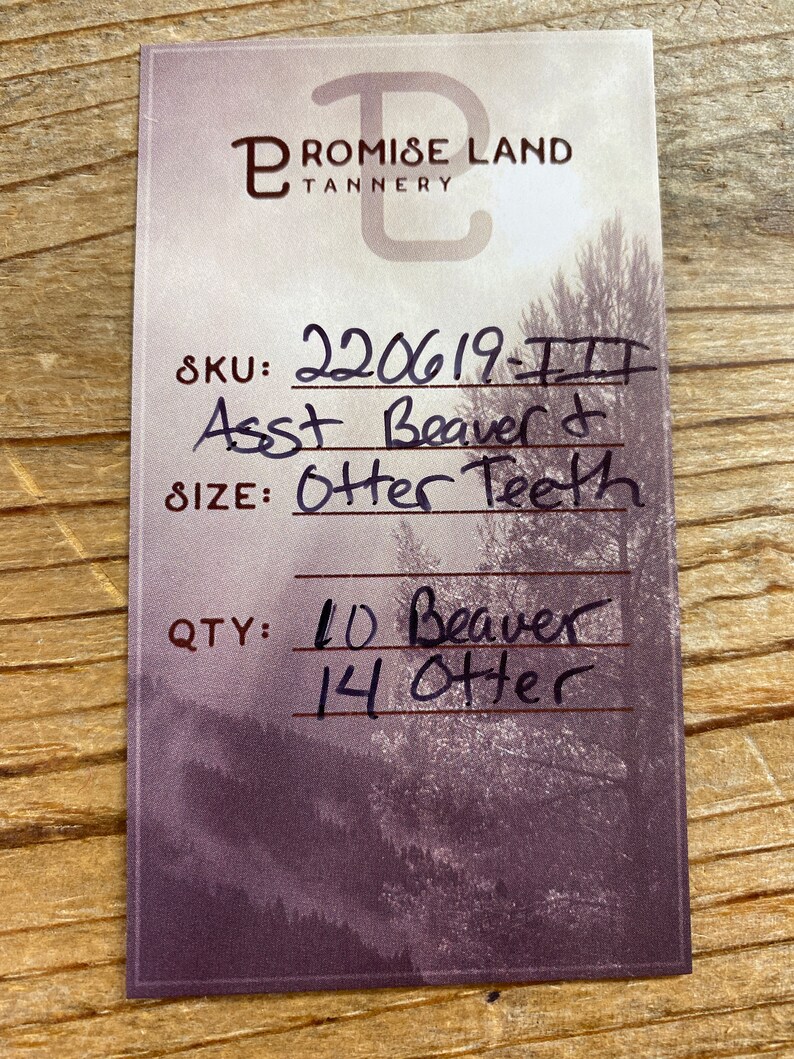 PROMISE LAND
TANNERY
SKU: 220619-III
Asst Beaver &
SIZE: Otter Teeth
QTY: 10 Beaver
14 Otter